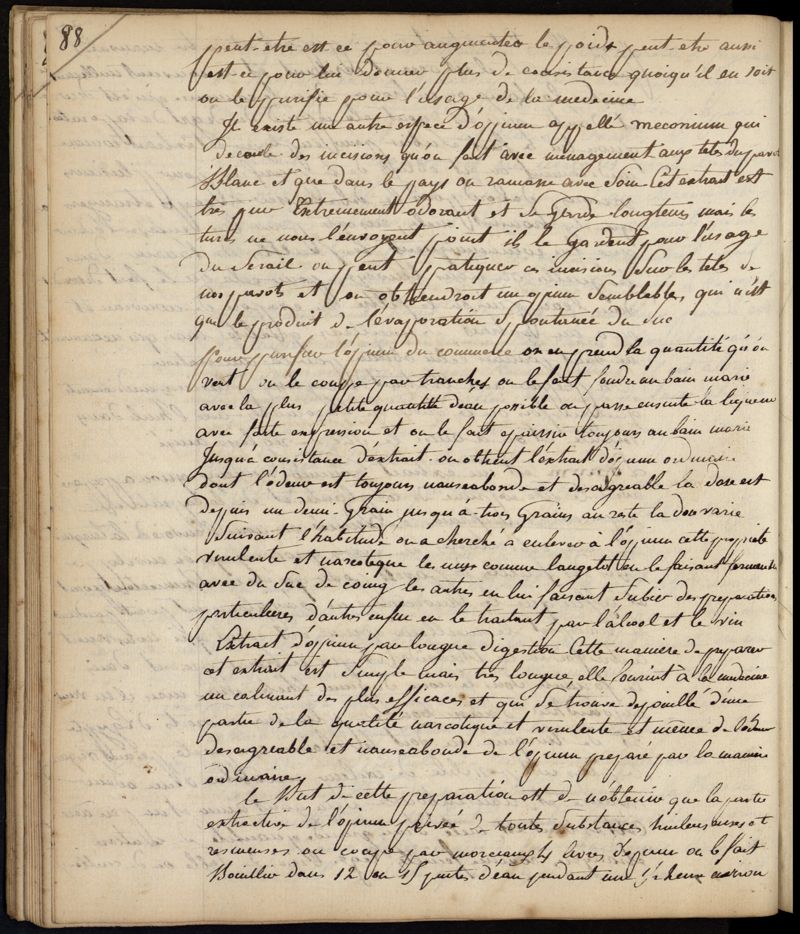 88
peut-etre est ce pour augmenter le poids peut-etre aussi
est-ce pour lui donner plus de consistance quoiqu'il en soit
on le purifie pour l'usage de la medecine
Il existe un autre espece d'opium appellé meconium qui
decoule des incisions qu'on fait avec menagement aux tetes du pavot
Blanc et que dans le pays on ramasse avec soin Cet extrait est
tres pur Extremement odorant et se Garde longtems mais les
turcs ne nous l'envoyent point ils le Gardent pour l'usage
du Serail on peut pratiquer ces incisions Sur les tetes de
nos pavots et on obtiendroit un opium Semblable, qui n'est
que le produit de l'évaporation Spontanée du Suc
Pour purifier l'opium du commerce on en prend la quantité qu'on
veut on le coupe par tranches on le fait fondre au bain marie
avec la plus petite quantité d'eau possible on passe ensuite la liqueur
avec forte expression et on le fait epaissir toujours au bain marie
Jusqu'a consistance d'extrait on obtient l'extrait d'opium ordinaire
dont l'odeur est toujours nauseabonde et desagreable la dose est
depuis un demi-Grain jusqu'à trois Grains au reste la dose varie
Suivant l'habitude on a cherché a enlever à l'opium cette propriété
virulente et narcotique les uns comme langelot en le faisant fermenter
avec du Suc de coing les autres en lui faisant Subir des preparations
particulieres d'autres enfin en le traitant par l'alcool et le vin
Extrait d'opium par longue digestion Cette maniere de preparer
cet extrait est Simple mais tres longue, elle fournit à la medecine
un calmant des plus efficaces et qui Se trouve depouillé d'une
partie de la qualité narcotique et virulente et même de l'odeur
desagreable et nauseabonde de l'opium preparé par la maniere
ordinaire
le But de cette preparation est de n'obtenir que la partie
extractive de l'opium privée de toutes Substances huileuses et
resineuses on coupe par morceaux 4 livres d'opium on le fait
Bouillir dans 12 ou 15 pintes d'eau pendant une 1/2 heure environ